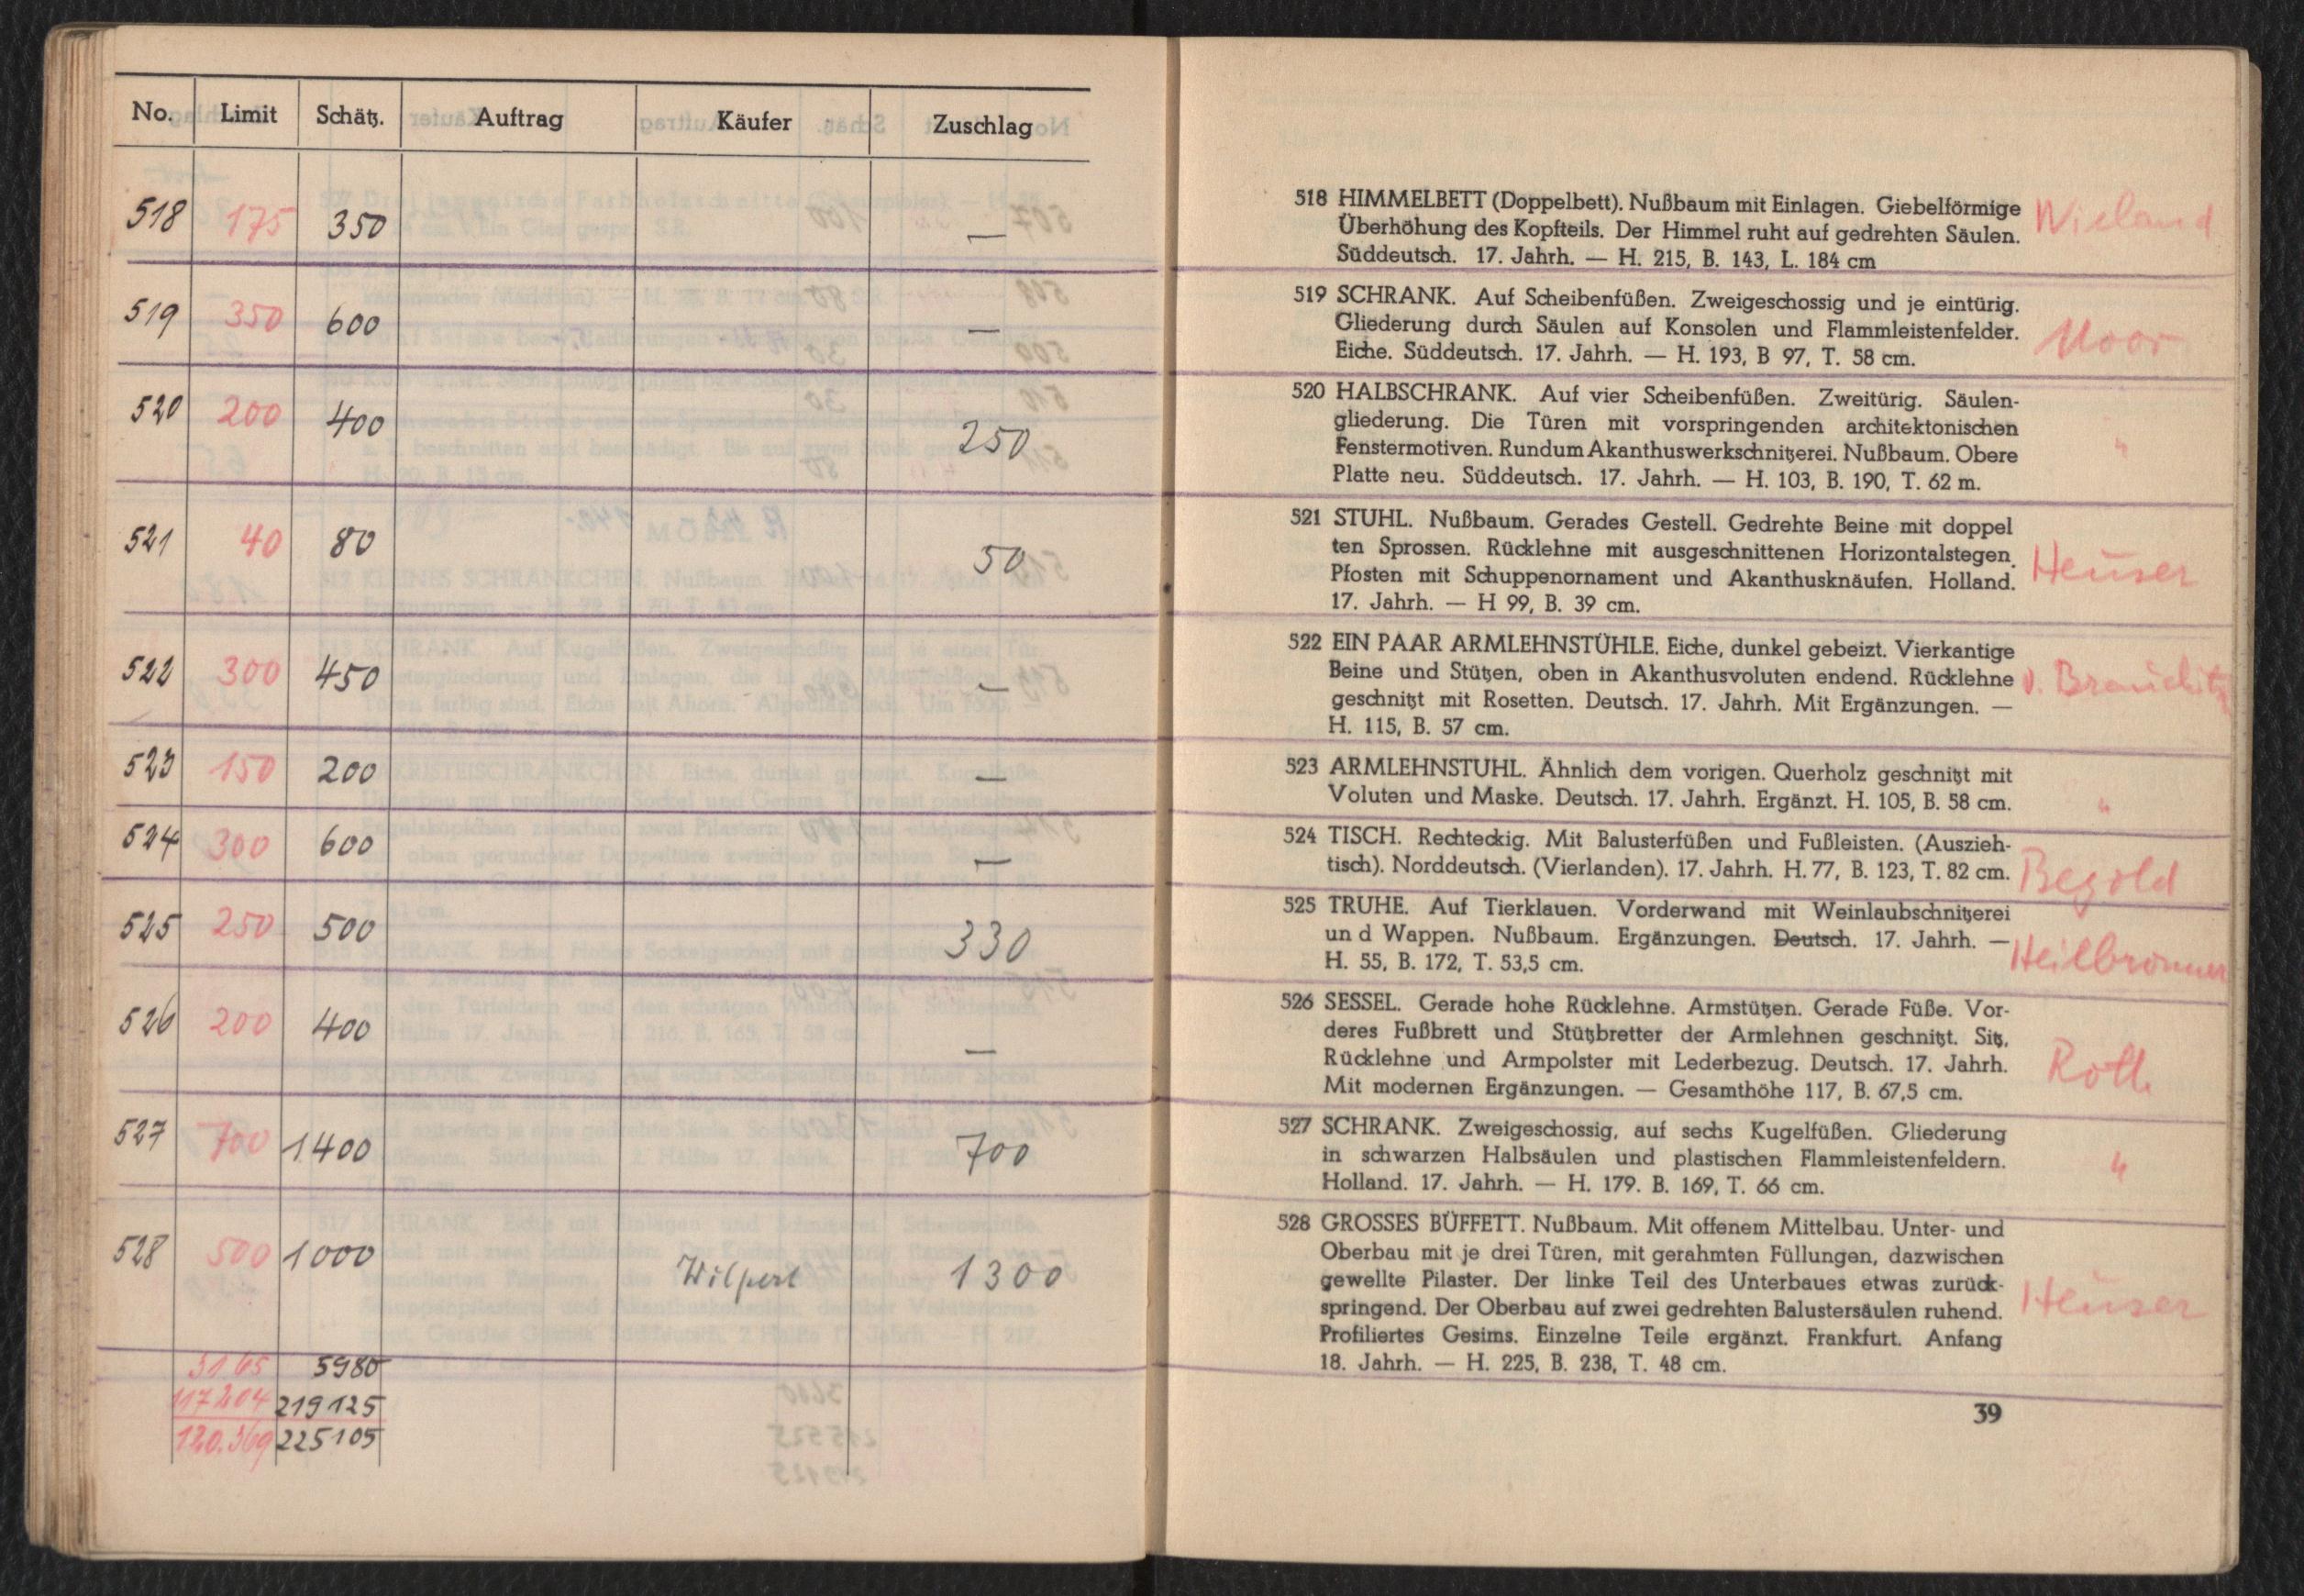 No. Limit Schätz. Auftrag Käufer Zuschlag
518 175 350 —
519 350 600 —
520 200 400 250
521 40 80 50
522 300 450 —
523 150 200 —
524 300 600 —
525 250 500 330
526 200 400 —
527 700 1400 700
528 500 1000 Wilpert 1300
3165 5980
117204 219125
120.369 225105
518 HIMMELBETT (Doppelbett). Nußbaum mit Einlagen. Giebelförmige Wieland
Überhöhung des Kopfteils. Der Himmel ruht auf gedrehten Säulen.
Süddeutsch. 17. Jahrh. — H. 215, B. 143, L. 184 cm
519 SCHRANK. Auf Scheibenfüßen. Zweigeschossig und je eintürig.
Gliederung durch Säulen auf Konsolen und Flammleistenfelder. Moor
Eiche. Süddeutsch. 17. Jahrh. — H. 193, B 97, T. 58 cm.
520 HALBSCHRANK. Auf vier Scheibenfüßen. Zweitürig. Säulen-
gliederung. Die Türen mit vorspringenden architektonischen
Fenstermotiven. Rundum Akanthuswerkschnitzerei. Nußbaum. Obere "
Platte neu. Süddeutsch. 17. Jahrh. — H. 103, B. 190, T. 62 m.
521 STUHL. Nußbaum. Gerades Gestell. Gedrehte Beine mit doppel
ten Sprossen. Rücklehne mit ausgeschnittenen Horizontalstegen. Heuser
Pfosten mit Schuppenornament und Akanthusknäufen. Holland.
17. Jahrh. — H 99, B. 39 cm.
522 EIN PAAR ARMLEHNSTÜHLE. Eiche, dunkel gebeizt. Vierkantige
Beine und Stützen, oben in Akanthusvoluten endend. Rücklehne v. Brauchitz
geschnitzt mit Rosetten. Deutsch. 17. Jahrh. Mit Ergänzungen. —
H. 115, B. 57 cm.
523 ARMLEHNSTUHL. Ähnlich dem vorigen. Querholz geschnitzt mit
Voluten und Maske. Deutsch. 17. Jahrh. Ergänzt. H. 105, B. 58 cm. "
524 TISCH. Rechteckig. Mit Balusterfüßen und Fußleisten. (Auszieh-
tisch). Norddeutsch. (Vierlanden). 17. Jahrh. H. 77, B. 123, T. 82 cm.
525 TRUHE. Auf Tierklauen. Vorderwand mit Weinlaubschnitzerei
un d Wappen. Nußbaum. Ergänzungen. Deutsch. 17. Jahrh. — Heilbronner
H. 55, B. 172, T. 53,5 cm.
526 SESSEL. Gerade hohe Rücklehne. Armstützen. Gerade Füße. Vor-
deres Fußbrett und Stützbretter der Armlehnen geschnitzt. Sitz,
Rücklehne und Armpolster mit Lederbezug. Deutsch. 17. Jahrh. Roth
Mit modernen Ergänzungen. — Gesamthöhe 117, B. 67,5 cm.
527 SCHRANK. Zweigeschossig, auf sechs Kugelfüßen. Gliederung
in schwarzen Halbsäulen und plastischen Flammleistenfeldern. "
Holland. 17. Jahrh. — H. 179. B. 169, T. 66 cm.
528 GROSSES BÜFFETT. Nußbaum. Mit offenem Mittelbau. Unter- und
Oberbau mit je drei Türen, mit gerahmten Füllungen, dazwischen
gewellte Pilaster. Der linke Teil des Unterbaues etwas zurück-
springend. Der Oberbau auf zwei gedrehten Balustersäulen ruhend. Heuser
Profiliertes Gesims. Einzelne Teile ergänzt. Frankfurt. Anfang
18. Jahrh. — H. 225, B. 238, T. 48 cm.
39